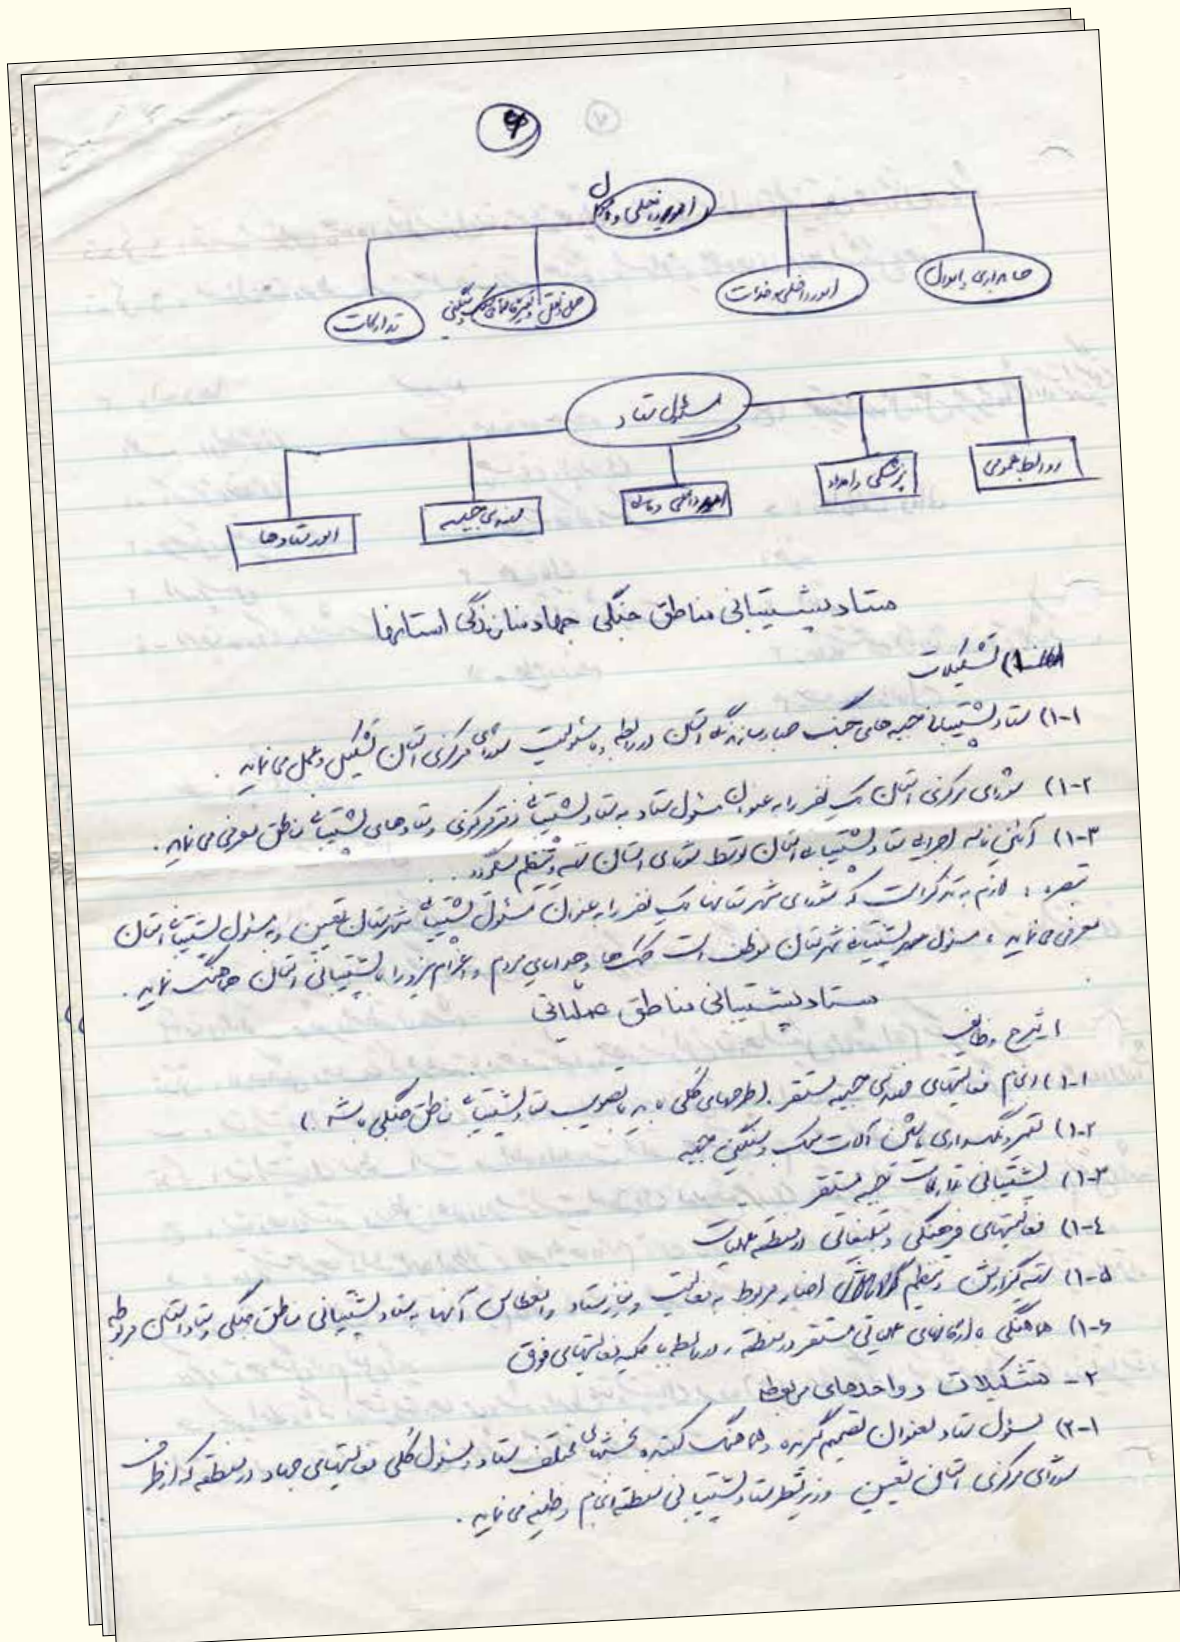 ۶
امور داخلی و
حسابداری و اموال
امور داخلی و خدمات
حمل و نقل و تعمیرگاههای سبک و سنگین
تدارکات
مسئول ستاد
روابط عمومی
پزشکی و امداد
امور داخلی و مالی
مهندسی جبهه
امور ستادها
ستاد پشتیبانی مناطق جنگی جهاد سازندگی استانها
۱) تشکیلات
۱-۱) ستاد پشتیبانی جبهه های جنگ جهاد سازندگی استان در رابطه و با مسئولیت شورای مرکزی استان تشکیل و عمل می نماید .
۱-۲) شورای مرکزی استان یک نفر را به عنوان مسئول ستاد به ستاد پشتیبانی دفتر مرکزی و ستادهای پشتیبانی مناطق معرفی می نماید .
۱-۳) آئین نامه اجرائی ستاد پشتیبانی استان توسط شورای استان تهیه و تنظیم میگردد .
تبصره : لازم به تذکر است که شورای شهرستانها یک نفر را به عنوان مسئول پشتیبانی شهرستان تعیین و به مسئول پشتیبانی استان
معرفی می نماید ، مسئول پشتیبانی شهرستان موظف است کمک ها و هدایای مردم و اعزام نیرو را با پشتیبانی استان هماهنگ نماید .
ستاد پشتیبانی مناطق عملیاتی
۱ شرح وظایف
۱-۱) انجام فعالیتهای مهندسی جبهه مستقر . (طرحهای کلی باید با تصویب ستاد پشتیبانی مناطق جنگی باشد .)
۱-۲) تعمیر و نگهداری ماشین آلات سبک و سنگین جبهه
۱-۳) پشتیبانی تدارکات جبهه مستقر
۱-۴) فعالیتهای فرهنگی و تبلیغاتی در منطقه عملیات
۱-۵) تهیه گزارش و تنظیم اخبار مربوط به فعالیت و نیاز ستاد و انعکاس آنها به ستاد پشتیبانی مناطق جنگی و ستاد استان مربوطه
۱-۶) هماهنگی با ارگانهای عملیاتی مستقر در منطقه در رابطه با کلیه فعالیتهای فوق
۲- تشکیلات و واحدهای مربوطه
۲-۱) مسئول ستاد بعنوان تصمیم گیرنده و هماهنگ کننده بخشهای مختلف ستاد و مسئول کلی فعالیتهای جهاد در منطقه که از طرف
شورای مرکزی استان تعیین و زیر نظر ستاد پشتیبانی منطقه انجام وظیفه می نماید .